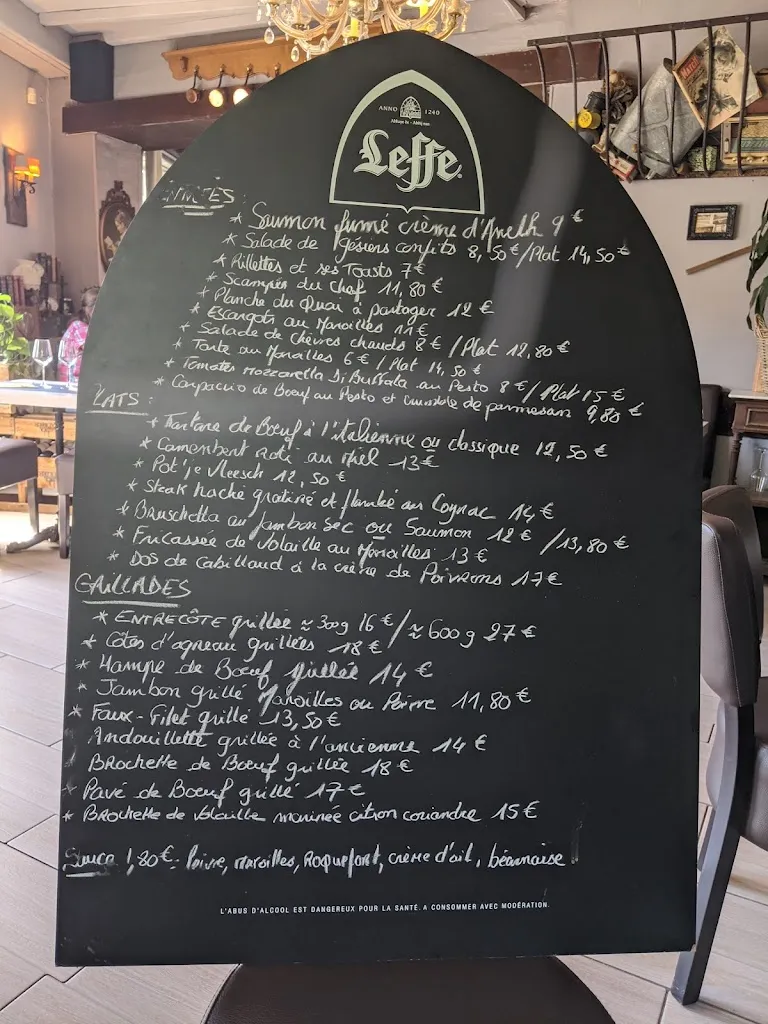 ANNO 1240
Leffe.
ENTRÉES :
* Saumon fumé crème d'Aneth 9 €
* Salade de gésiers confits 8,50 € / Plat 14,50 €
* Rillettes et ses Toasts 7 €
* Scampis du Chef 11,80 €
* Planche du Quai à partager 12 €
* Escargots au Maroilles 11 €
* Salade de chèvres chauds 8 € / Plat 12,80 €
* Tarte au Maroilles 6 € / Plat 14,50 €
* Tomates Mozzarella Di Buffala au Pesto 8 € / Plat 15 €
* Carpaccio de Boeuf au Pesto et crumble de parmesan 9,80 €
PLATS :
* Tartare de Boeuf à l'italienne ou classique 12,50 €
* Camembert roti au miel 13 €
* Pot'je Vleesch 12,50 €
* Steak haché gratiné et flambé au Cognac 14 €
* Bruschetta au Jambon sec ou Saumon 12 € / 13,80 €
* Fricassée de Volaille au Maroilles 13 €
* Dos de Cabillaud à la crème de Poivrons 17 €
GRILLADES
* ENTRECÔTE grillée ≈ 300g 16 € / ≈ 600g 27 €
* Côtes d'agneau grillées 18 €
* Hampe de Boeuf grillée 14 €
* Jambon grillé Maroilles ou Poivre 11,80 €
* Faux-Filet grillé 13,50 €
Andouillette grillée à l'ancienne 14 €
* Brochette de Boeuf grillée 18 €
* Pavé de Boeuf grillé 17 €
* Brochette de Volaille marinée citron coriandre 15 €
Sauce 1,80 € : Poivre, maroilles, Roquefort, crème d'ail, béarnaise
L'ABUS D'ALCOOL EST DANGEREUX POUR LA SANTÉ. A CONSOMMER AVEC MODÉRATION.